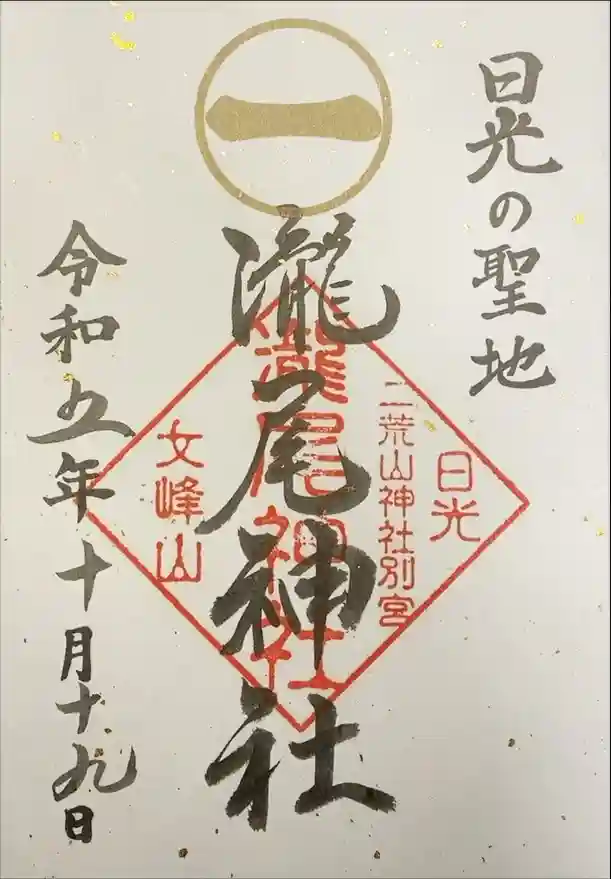 日光の聖地
一
瀧尾神社
日光
二荒山神社別宮
瀧尾神社
女峰山
令和五年十月十九日